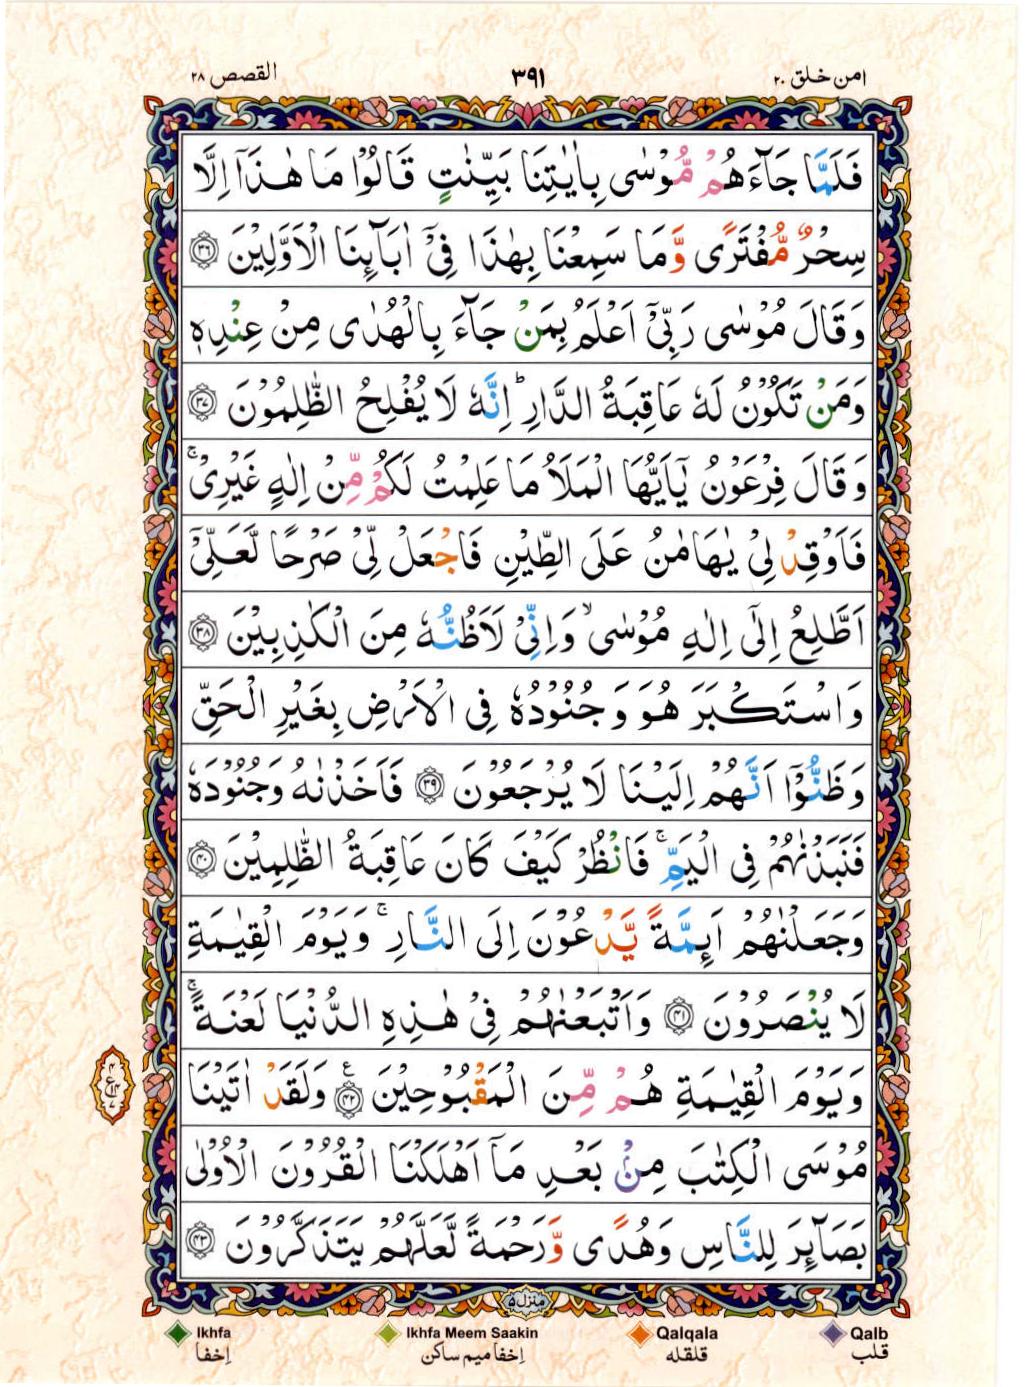 امن خلق ۲۰
۳۹۱
القصص ۲۸
فَلَمَّا جَآءَهُمْ مُّوْسٰى بِاٰيٰتِنَا بَيِّنٰتٍ قَالُوْا مَا هٰذَاۤ اِلَّا
سِحْرٌ مُّفْتَرًى وَّمَا سَمِعْنَا بِهٰذَا فِىْۤ اٰبَآئِنَا الْاَوَّلِيْنَ ۝۳۶
وَقَالَ مُوْسٰى رَبِّىْۤ اَعْلَمُ بِمَنْ جَآءَ بِالْهُدٰى مِنْ عِنْدِهٖ
وَمَنْ تَكُوْنُ لَهٗ عَاقِبَةُ الدَّارِ ؕ اِنَّهٗ لَا يُفْلِحُ الظّٰلِمُوْنَ ۝۳۷
وَقَالَ فِرْعَوْنُ يٰۤاَيُّهَا الْمَلَاُ مَا عَلِمْتُ لَكُمْ مِّنْ اِلٰهٍ غَيْرِىْ ۚ
فَاَوْقِدْ لِىْ يٰهَامٰنُ عَلَى الطِّيْنِ فَاجْعَلْ لِّىْ صَرْحًا لَّعَلِّىْۤ
اَطَّلِعُ اِلٰٓى اِلٰهِ مُوْسٰى ۙ وَاِنِّىْ لَاَظُنُّهٗ مِنَ الْكٰذِبِيْنَ ۝۳۸
وَاسْتَكْبَرَ هُوَ وَجُنُوْدُهٗ فِى الْاَرْضِ بِغَيْرِ الْحَقِّ
وَظَنُّوْۤا اَنَّهُمْ اِلَيْنَا لَا يُرْجَعُوْنَ ۝۳۹ فَاَخَذْنٰهُ وَجُنُوْدَهٗ
فَنَبَذْنٰهُمْ فِى الْيَمِّ ۚ فَانْظُرْ كَيْفَ كَانَ عَاقِبَةُ الظّٰلِمِيْنَ ۝۴۰
وَجَعَلْنٰهُمْ اَئِمَّةً يَّدْعُوْنَ اِلَى النَّارِ ۚ وَيَوْمَ الْقِيٰمَةِ
لَا يُنْصَرُوْنَ ۝۴۱ وَاَتْبَعْنٰهُمْ فِىْ هٰذِهِ الدُّنْيَا لَعْنَةً ۚ
وَيَوْمَ الْقِيٰمَةِ هُمْ مِّنَ الْمَقْبُوْحِيْنَ ۝۴۲ ع وَلَقَدْ اٰتَيْنَا
مُوْسَى الْكِتٰبَ مِنْۢ بَعْدِ مَاۤ اَهْلَكْنَا الْقُرُوْنَ الْاُوْلٰى
بَصَآئِرَ لِلنَّاسِ وَهُدًى وَّرَحْمَةً لَّعَلَّهُمْ يَتَذَكَّرُوْنَ ۝۴۳
منزل ۵
Ikhfa
Ikhfa Meem Saakin
Qalqala
Qalb
اِخفا
اِخفا میم ساکن
قلقله
قلب